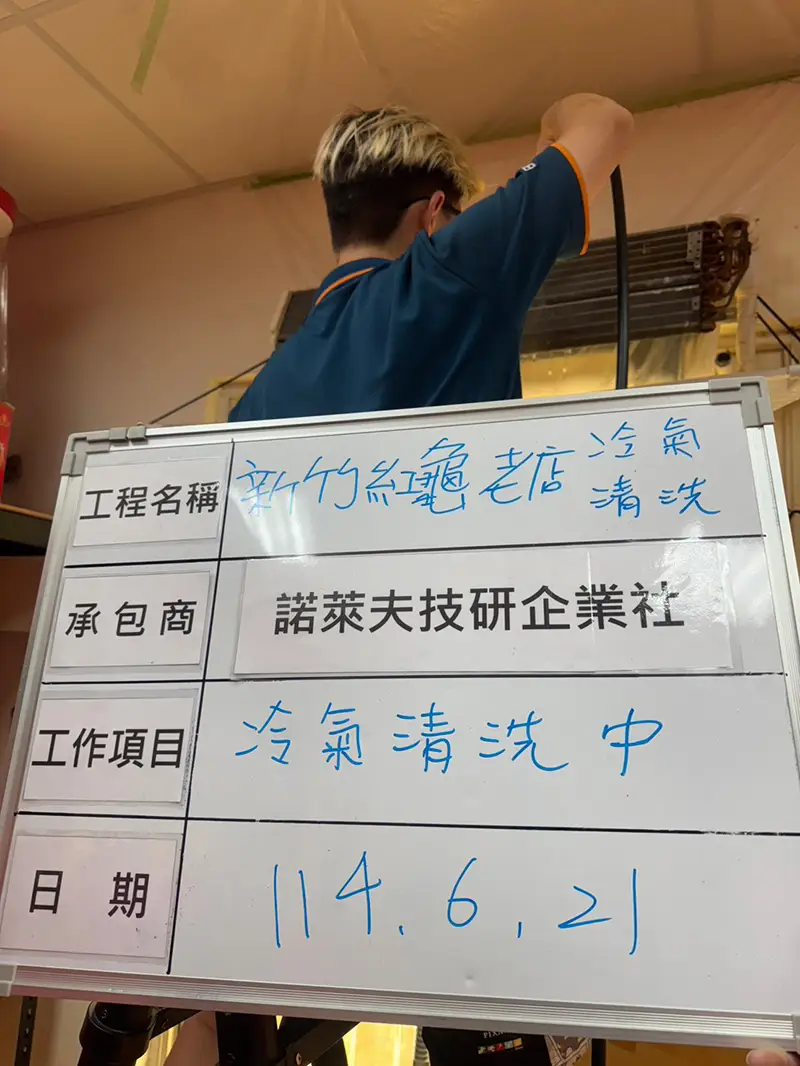 工程名稱 新竹紅龜老店 冷氣
清洗
承包商 諾萊夫技研企業社
工作項目 冷氣清洗中
日期 114.6.21